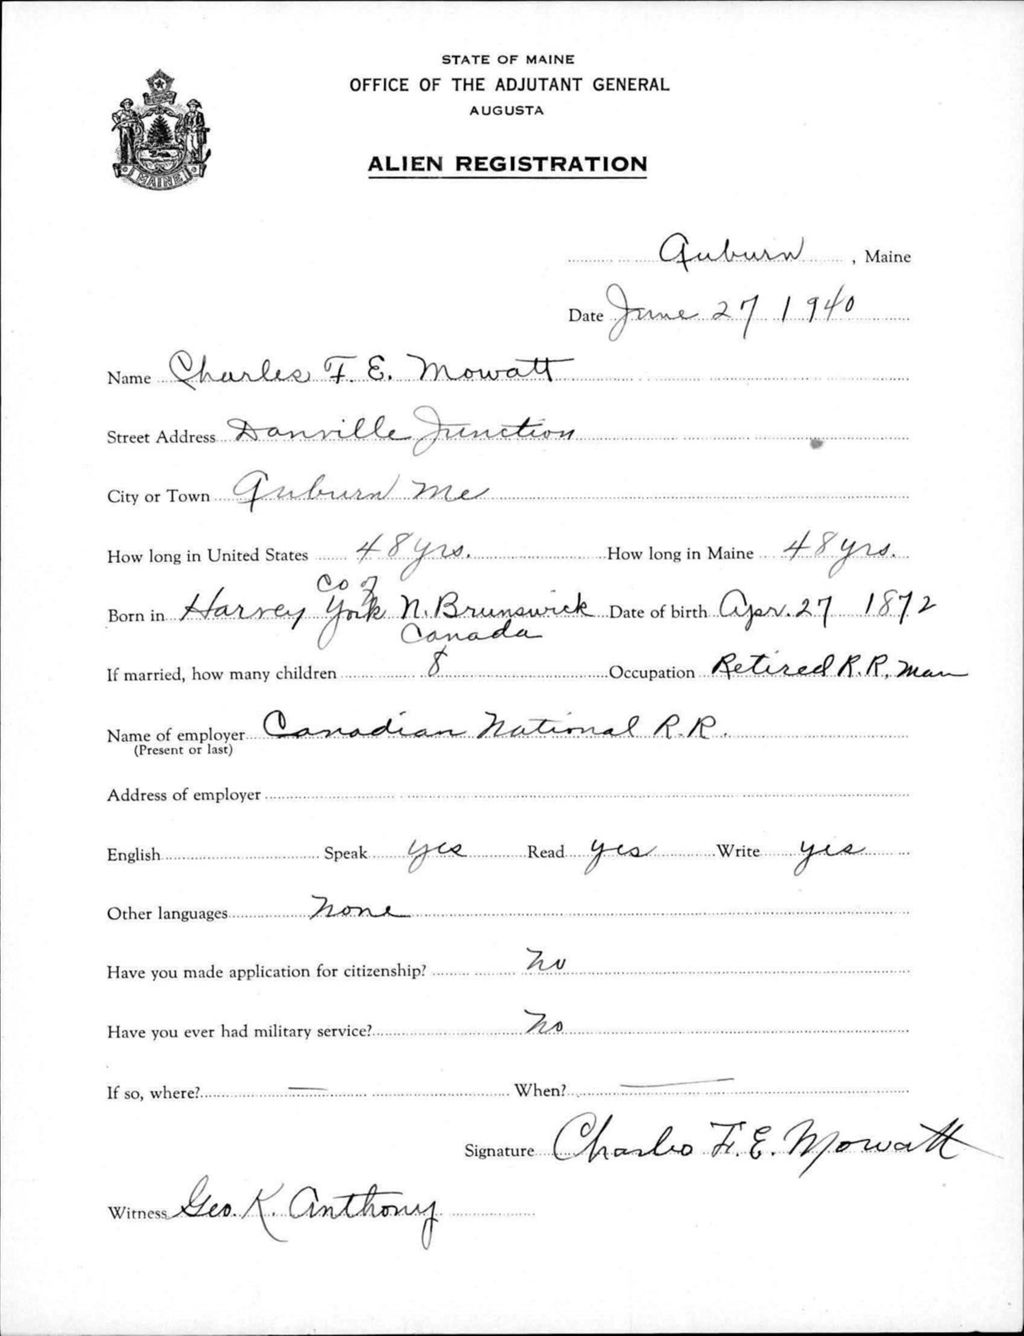 STATE OF MAINE
OFFICE OF THE ADJUTANT GENERAL
AUGUSTA
MAINE
ALIEN REGISTRATION
Auburn, Maine
Date June 27 1940
Name Charles F. E. Mowatt
Street Address Danville Junction
City or Town Auburn Me
How long in United States 48 yrs. How long in Maine 48 yrs.
Co of
Born in Harvey York N. Brunswick Date of birth Apr. 27 1872
Canada
If married, how many children 8 Occupation Retired R.R. man
Name of employer Canadian National R.R.
(Present or last)
Address of employer
English Speak yes Read yes Write yes
Other languages None
Have you made application for citizenship? No
Have you ever had military service? No
If so, where? — When? —
Signature Charles F. E. Mowatt
Witness Geo. K. Anthony